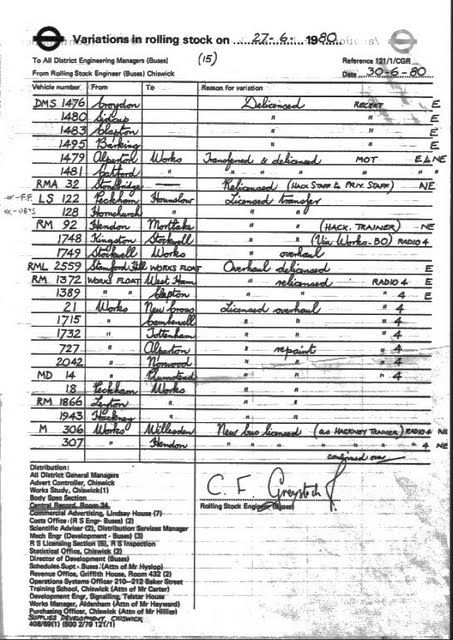 Variations in rolling stock on 27-6-1980
To All District Engineering Managers (Buses) (15) Reference 121/1/CGR
From Rolling Stock Engineer (Buses) Chiswick Date 30-6-80
Vehicle number From To Reason for variation
DMS 1476 Croydon Delicensed RECERT E
1480 Sidcup " " E
1483 Clapton " " E
1495 Barking " " E
1479 Alperton Works Transferred & delicensed MOT E & NE
1481 Catford " " " " "
RMA 32 Stonebridge — Relicensed (HACK STAFF to PRIV. STAFF) NE
ex-F.F. LS 122 Peckham Hounslow Licensed transfer
128 Hornchurch " " "
RM 92 Hendon Mortlake " " (HACK. TRAINER) NE
1748 Kingston Stockwell " " (Via Works-BO) RADIO 4
1749 Stockwell Works " overhaul
RML 2559 Stamford Hill WORKS FLOAT Overhaul delicensed E
RM 1372 WORKS FLOAT West Ham " relicensed RADIO 4 E
1389 " Clapton " " " 4 E
21 Works New Cross Licensed overhaul " 4
1715 " Camberwell " " " 4
1732 " Tottenham " " " 4
727 " Alperton " repaint " 4
2042 " Norwood " " " 4
MD 14 " Plumstead " " " 4
18 Peckham Works " "
RM 1866 Leyton " " "
1943 Hackney " " "
M 306 Works Willesden New bus licensed (as HACKNEY TRAINER) RADIO 4 NE
307 " Hendon " " " " " " " 4 NE
continued over
Distribution:
All District General Managers
Advert Controller, Chiswick
Works Study, Chiswick(1)
Body Spec Section
Central Record, Room 34
Commercial Advertising, Lindsay House (7)
Costs Office (R S Engr- Buses) (2)
Scientific Adviser (2), Distribution Services Manager
Mech Engr (Development - Buses) (3)
R S Licensing Section (5), R S Inspection
Statistical Office, Chiswick (2)
Director of Development (Buses)
Schedules.Supt - Buses (Attn of Mr Hyslop)
Revenue Office, Griffith House, Room 432 (2)
Operations Systems Officer 210-212 Baker Street
Training School, Chiswick (Attn of Mr Carter)
Development Engr, Signalling, Telstar House
Works Manager, Aldenham (Attn of Mr Hayward)
Purchasing Officer, Chiswick (Attn of Mr Hillier)
SUPPLIES DEVELOPMENT, CHISWICK
408/69(1) (500 2/79 121/1)
C. F.
Rolling Stock Engineer (Buses)